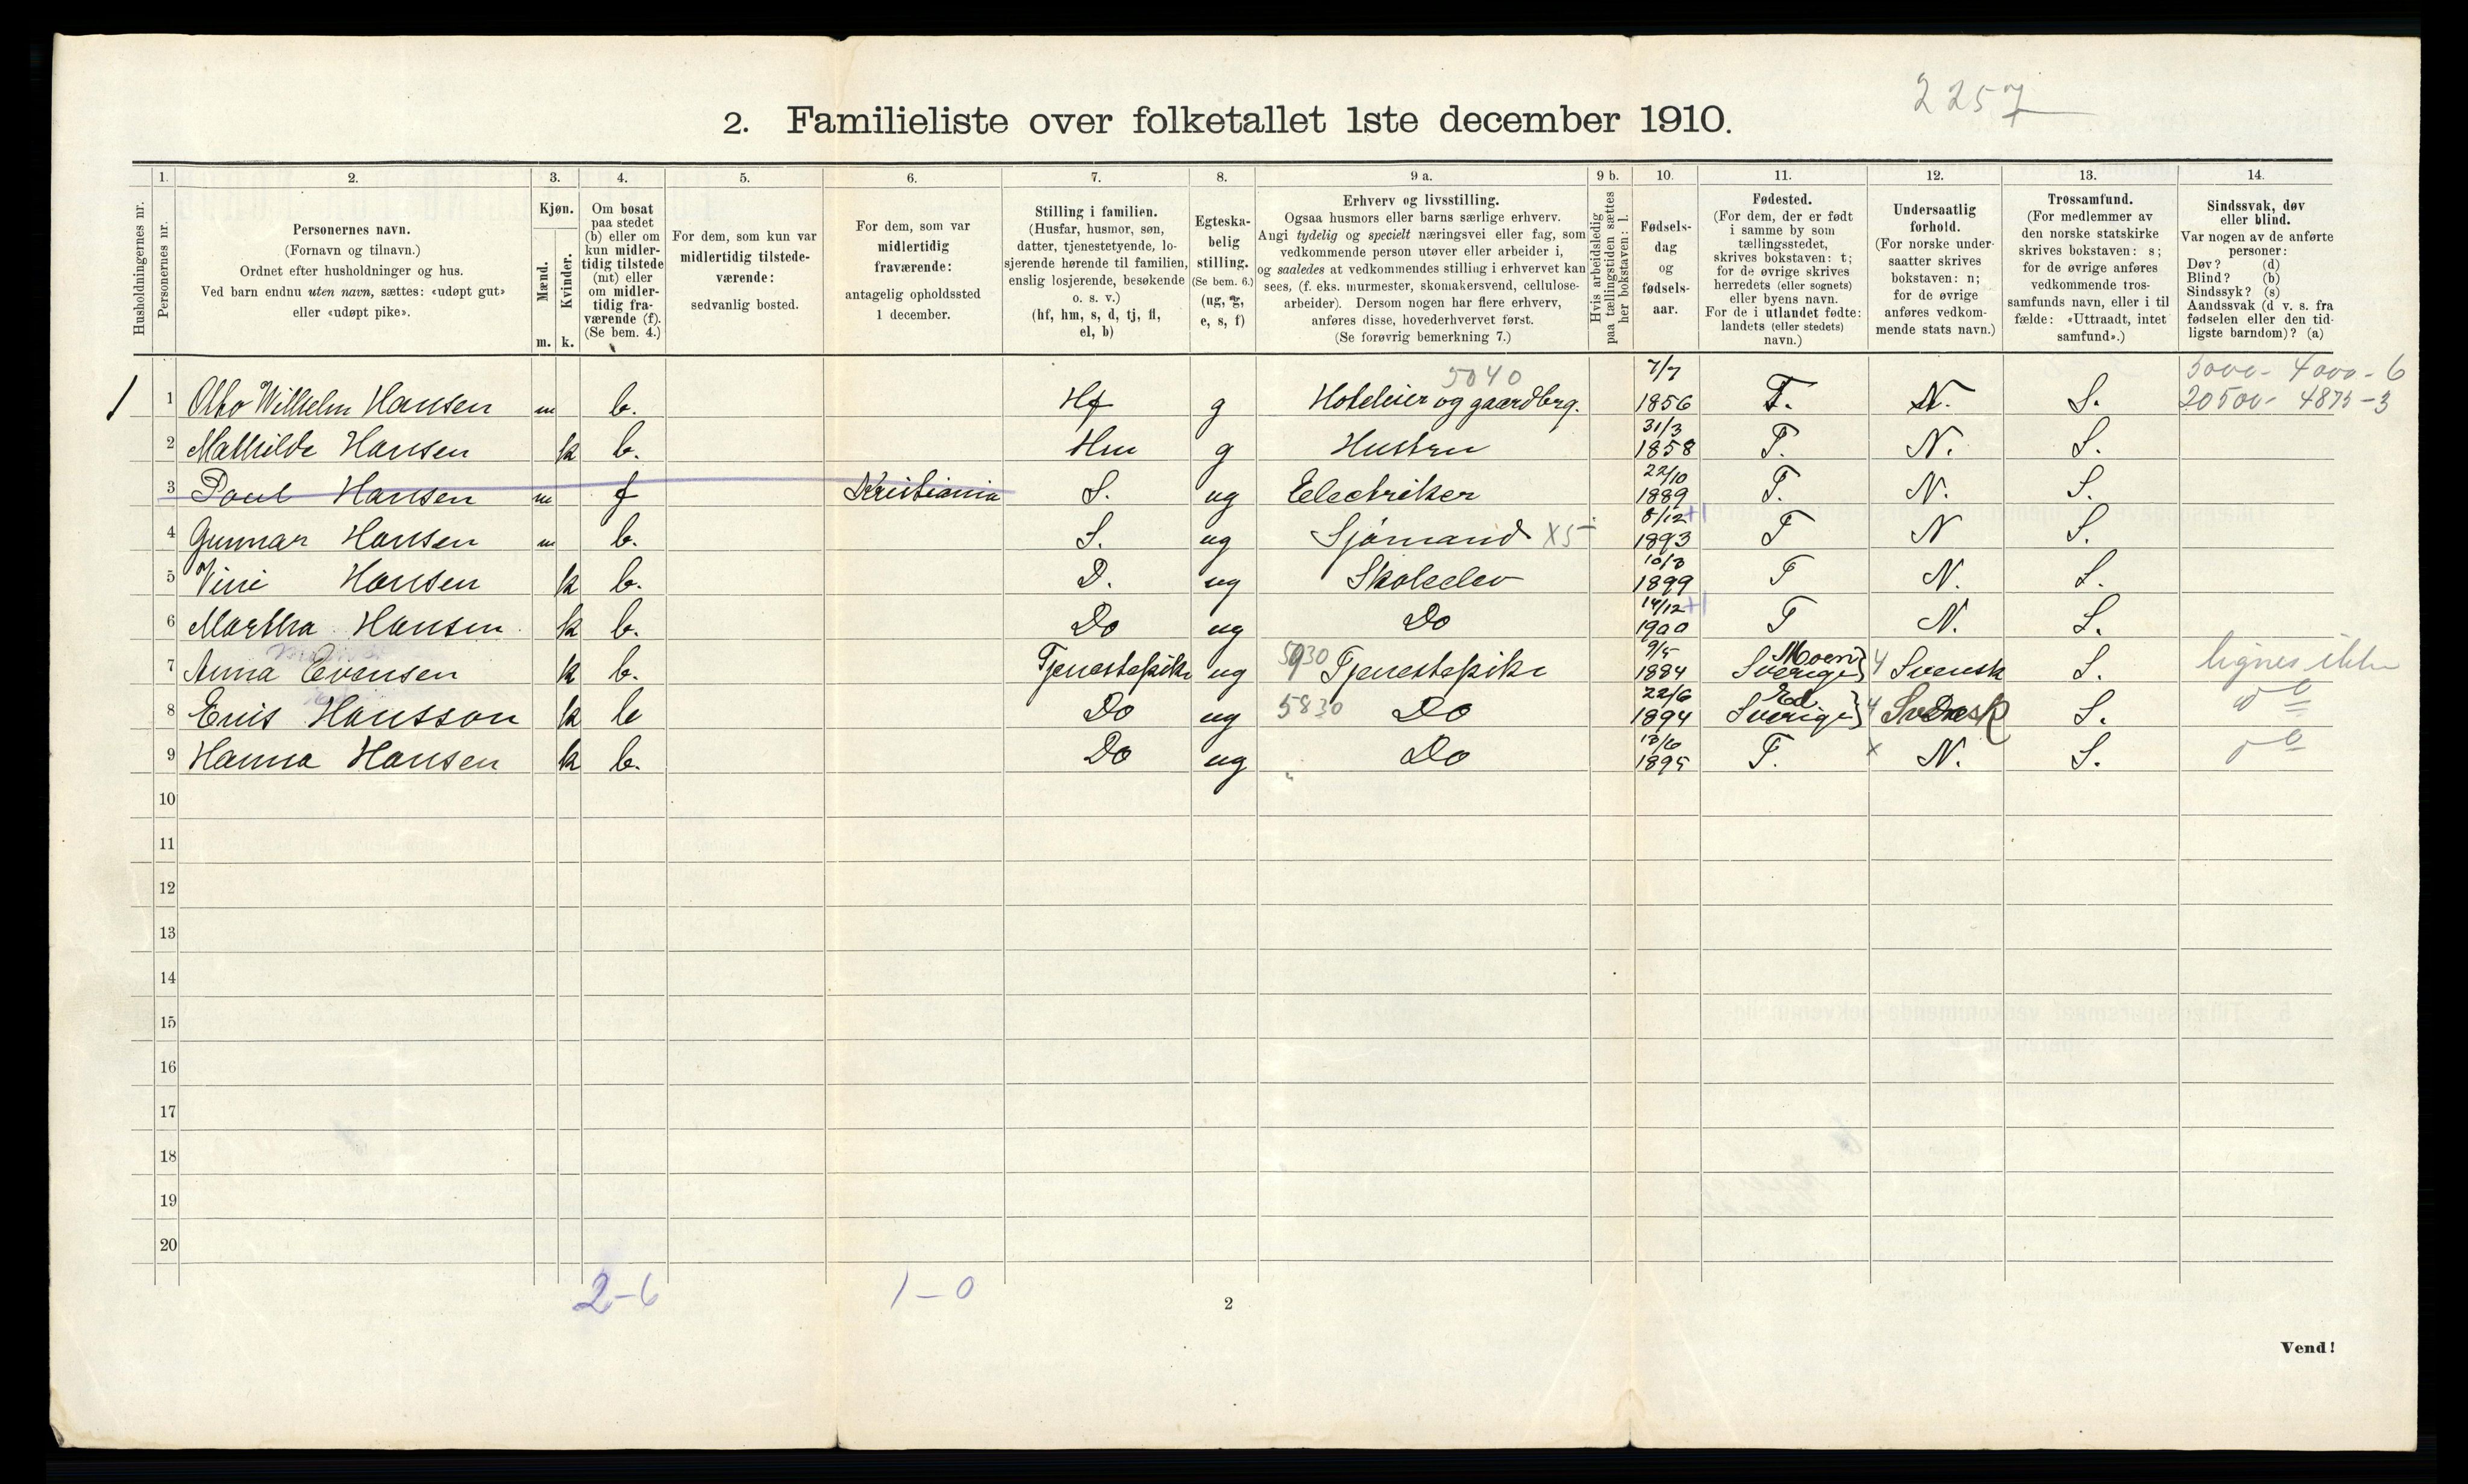 2257
2. Familieliste over folketallet 1ste december 1910.
Husholdningernes nr.
1.
Personernes nr.
2.
Personernes navn.
(Fornavn og tilnavn.)
Ordnet efter husholdninger og hus.
Ved barn endnu uten navn, sættes: «udøpt gut»
eller «udøpt pike».
3.
Kjøn.
Mænd.
Kvinder.
m. k.
4.
Om bosat
paa stedet
(b) eller om
kun midler-
tidig tilstede
(mt) eller
om midler-
tidig fra-
værende (f).
(Se bem. 4.)
5.
For dem, som kun var
midlertidig tilstede-
værende:
sedvanlig bosted.
6.
For dem, som var
midlertidig
fraværende:
antagelig opholdssted
1 december.
7.
Stilling i familien.
(Husfar, husmor, søn,
datter, tjenestetyende, lo-
sjerende hørende til familien,
enslig losjerende, besøkende
o. s. v.)
(hf, hm, s, d, tj, fl,
el, b)
8.
Egteska-
belig
stilling.
(Se bem. 6.)
(ug, g,
e, s, f)
9 a.
Erhverv og livsstilling.
Ogsaa husmors eller barns særlige erhverv.
Angi tydelig og specielt næringsvei eller fag, som
vedkommende person utøver eller arbeider i,
og saaledes at vedkommendes stilling i erhvervet kan
sees, (f. eks. murmester, skomakersvend, cellulose-
arbeider). Dersom nogen har flere erhverv,
anføres disse, hovederhvervet først.
(Se forøvrig bemerkning 7.)
9 b.
Hvis arbeidsledig
paa tællingstiden sættes
her bokstaven: l.
10.
Fødsels-
dag
og
fødsels-
aar.
11.
Fødested.
(For dem, der er født
i samme by som
tællingsstedet,
skrives bokstaven: t;
for de øvrige skrives
herredets (eller sognets)
eller byens navn.
For de i utlandet fødte:
landets (eller stedets)
navn.)
12.
Undersaatlig
forhold.
(For norske under-
saatter skrives
bokstaven: n;
for de øvrige
anføres vedkom-
mende stats navn.)
13.
Trossamfund.
(For medlemmer av
den norske statskirke
skrives bokstaven: s;
for de øvrige anføres
vedkommende tros-
samfunds navn, eller i til
fælde: «Uttraadt, intet
samfund».)
14.
Sindssvak, døv
eller blind.
Var nogen av de anførte
personer:
Døv? (d)
Blind? (b)
Sindssyk? (s)
Aandssvak (d v. s. fra
fødselen eller den tid-
ligste barndom)? (a)
5040 7/7 5000- 4000-6
1 1 Otto Wilhelm Hansen m b. Hf g Hoteleier og gaardbrg. 1856 T. N. S. 20500- 4875-3
2 Mathilde Hansen k b. Hm g Hustru 31/3 1858 T. N. S.
3 Paul Hansen m f Kristiania S. ug Electriker 22/10 1889 T. N. S.
4 Gunnar Hansen m b. S. ug Sjømand X5- 8/12 +1 1893 T N S.
5 Vini Hansen k b. D. ug Skoleelev 10/3 1899 T N. S.
6 Martha Hansen k b. Do ug Do 14/12 +1 1900 T N. S.
7 Anna Evensen k b. Tjenestepike ug Tjenestepike 9/5 1884 Moen Sverige} 4 Svensk S. lignes ikke
8 Hansson k b Do ug 5830 Do 22/6 1894 Ed Sverige} 4 Svensk S. do
9 Hanna Hansen k b. Do ug Do 13/6 1895 T. x N. S. do
10
11
12
13
14
15
16
17
18
19
20
2-6 1-0
2
Vend!